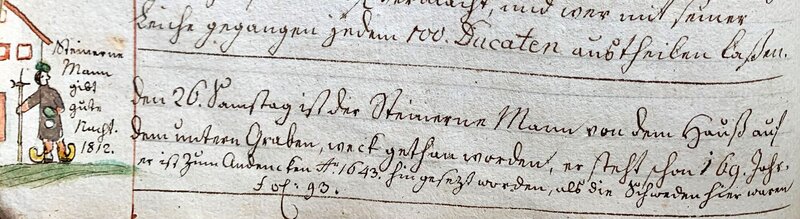 vermacht, und wer mit seiner
Leiche gegangen jedem 100. Ducaten austheilen laßen.
Steinerne
Mann
gibt
gute
Nacht.
1812.
den 26. Samstag ist der Steinerne Mann von dem Hauß auf
dem untern Graben, weck gethan worden, er steht schon 169. Jahr.
er ist zum Andencken Ao 1643. hingesetzt worden, als die Schweden hier waren
Fol: 93.